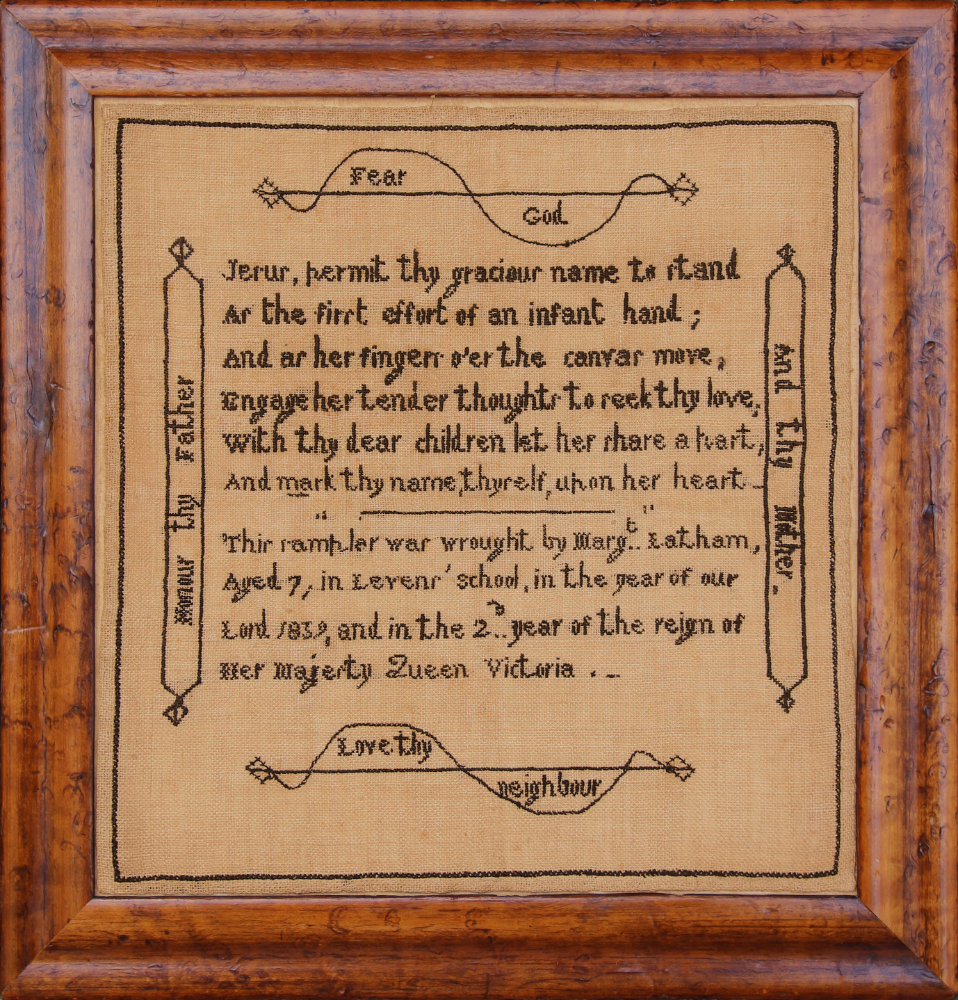 Fear
God
Honour thy Father
And thy Mother.
Jesus, permit thy gracious name to stand
As the first effort of an infant hand ;
And as her fingers o'er the canvas move,
Engage her tender thoughts to seek thy love,
With thy dear children let her share a part,
And mark thy name, thyself, upon her heart
" "
This sampler was wrought by Margt.. Latham,
Aged 7, in Levens' School, in the year of our
Lord 1839, and in the 2d.. year of the reign of
Her Majesty Queen Victoria . _
Love thy
neighbour